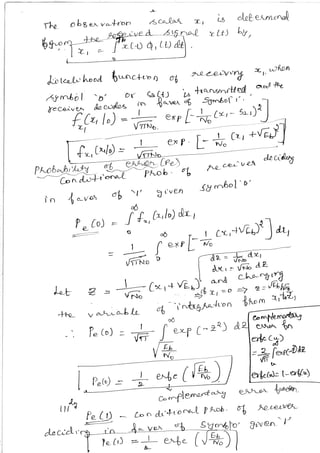 The observation scalar x₁ is determined
from the received signal x(t) by,
x₁ = ∫₀^Tb x(t) ϕ₁(t) dt.
Likelihood function of receiving x₁, when
symbol '0' or S₂(t) is transmitted and the
receiver decides in favor of symbol '1'.
f_x₁(x₁|0) = 1/√πN₀ exp[-1/N₀ (x₁ - S₂₁)²]
f_x₁(x₁|0) = 1/√πN₀ exp[-1/N₀ (x₁ + √Eb)²]
Probability of error (Pe)
Conditional Prob. of receiver deciding
in favor of '1' given symbol '0'
Pe(0) = ∫₀^∞ f_x₁(x₁|0) dx₁
= 1/√πN₀ ∫₀^∞ exp[-1/N₀ (x₁ + √Eb)²] dx₁
dz = 1/√N₀ dx₁
dx₁ = √N₀ dz
Let z = 1/√N₀ (x₁ + √Eb) and changing
if x₁ = 0 => z = √Eb/N₀
the variable of integration from x₁ to z,
∴ Pe(0) = 1/√π ∫_√(Eb/N₀)^∞ exp(-z²) dz
Complementary
error fn
erfc(u)
= 2/√π ∫ exp(-z²) dz
erfc(u) = 1 - erf(u)
Pe(0) = 1/2 erfc(√Eb/N₀)
Complementary error function.
|||ly
Pe(1) - Conditional Prob. of receiver
deciding in favor of symbol '0' given '1'
Pe(1) = 1/2 erfc(√Eb/N₀)